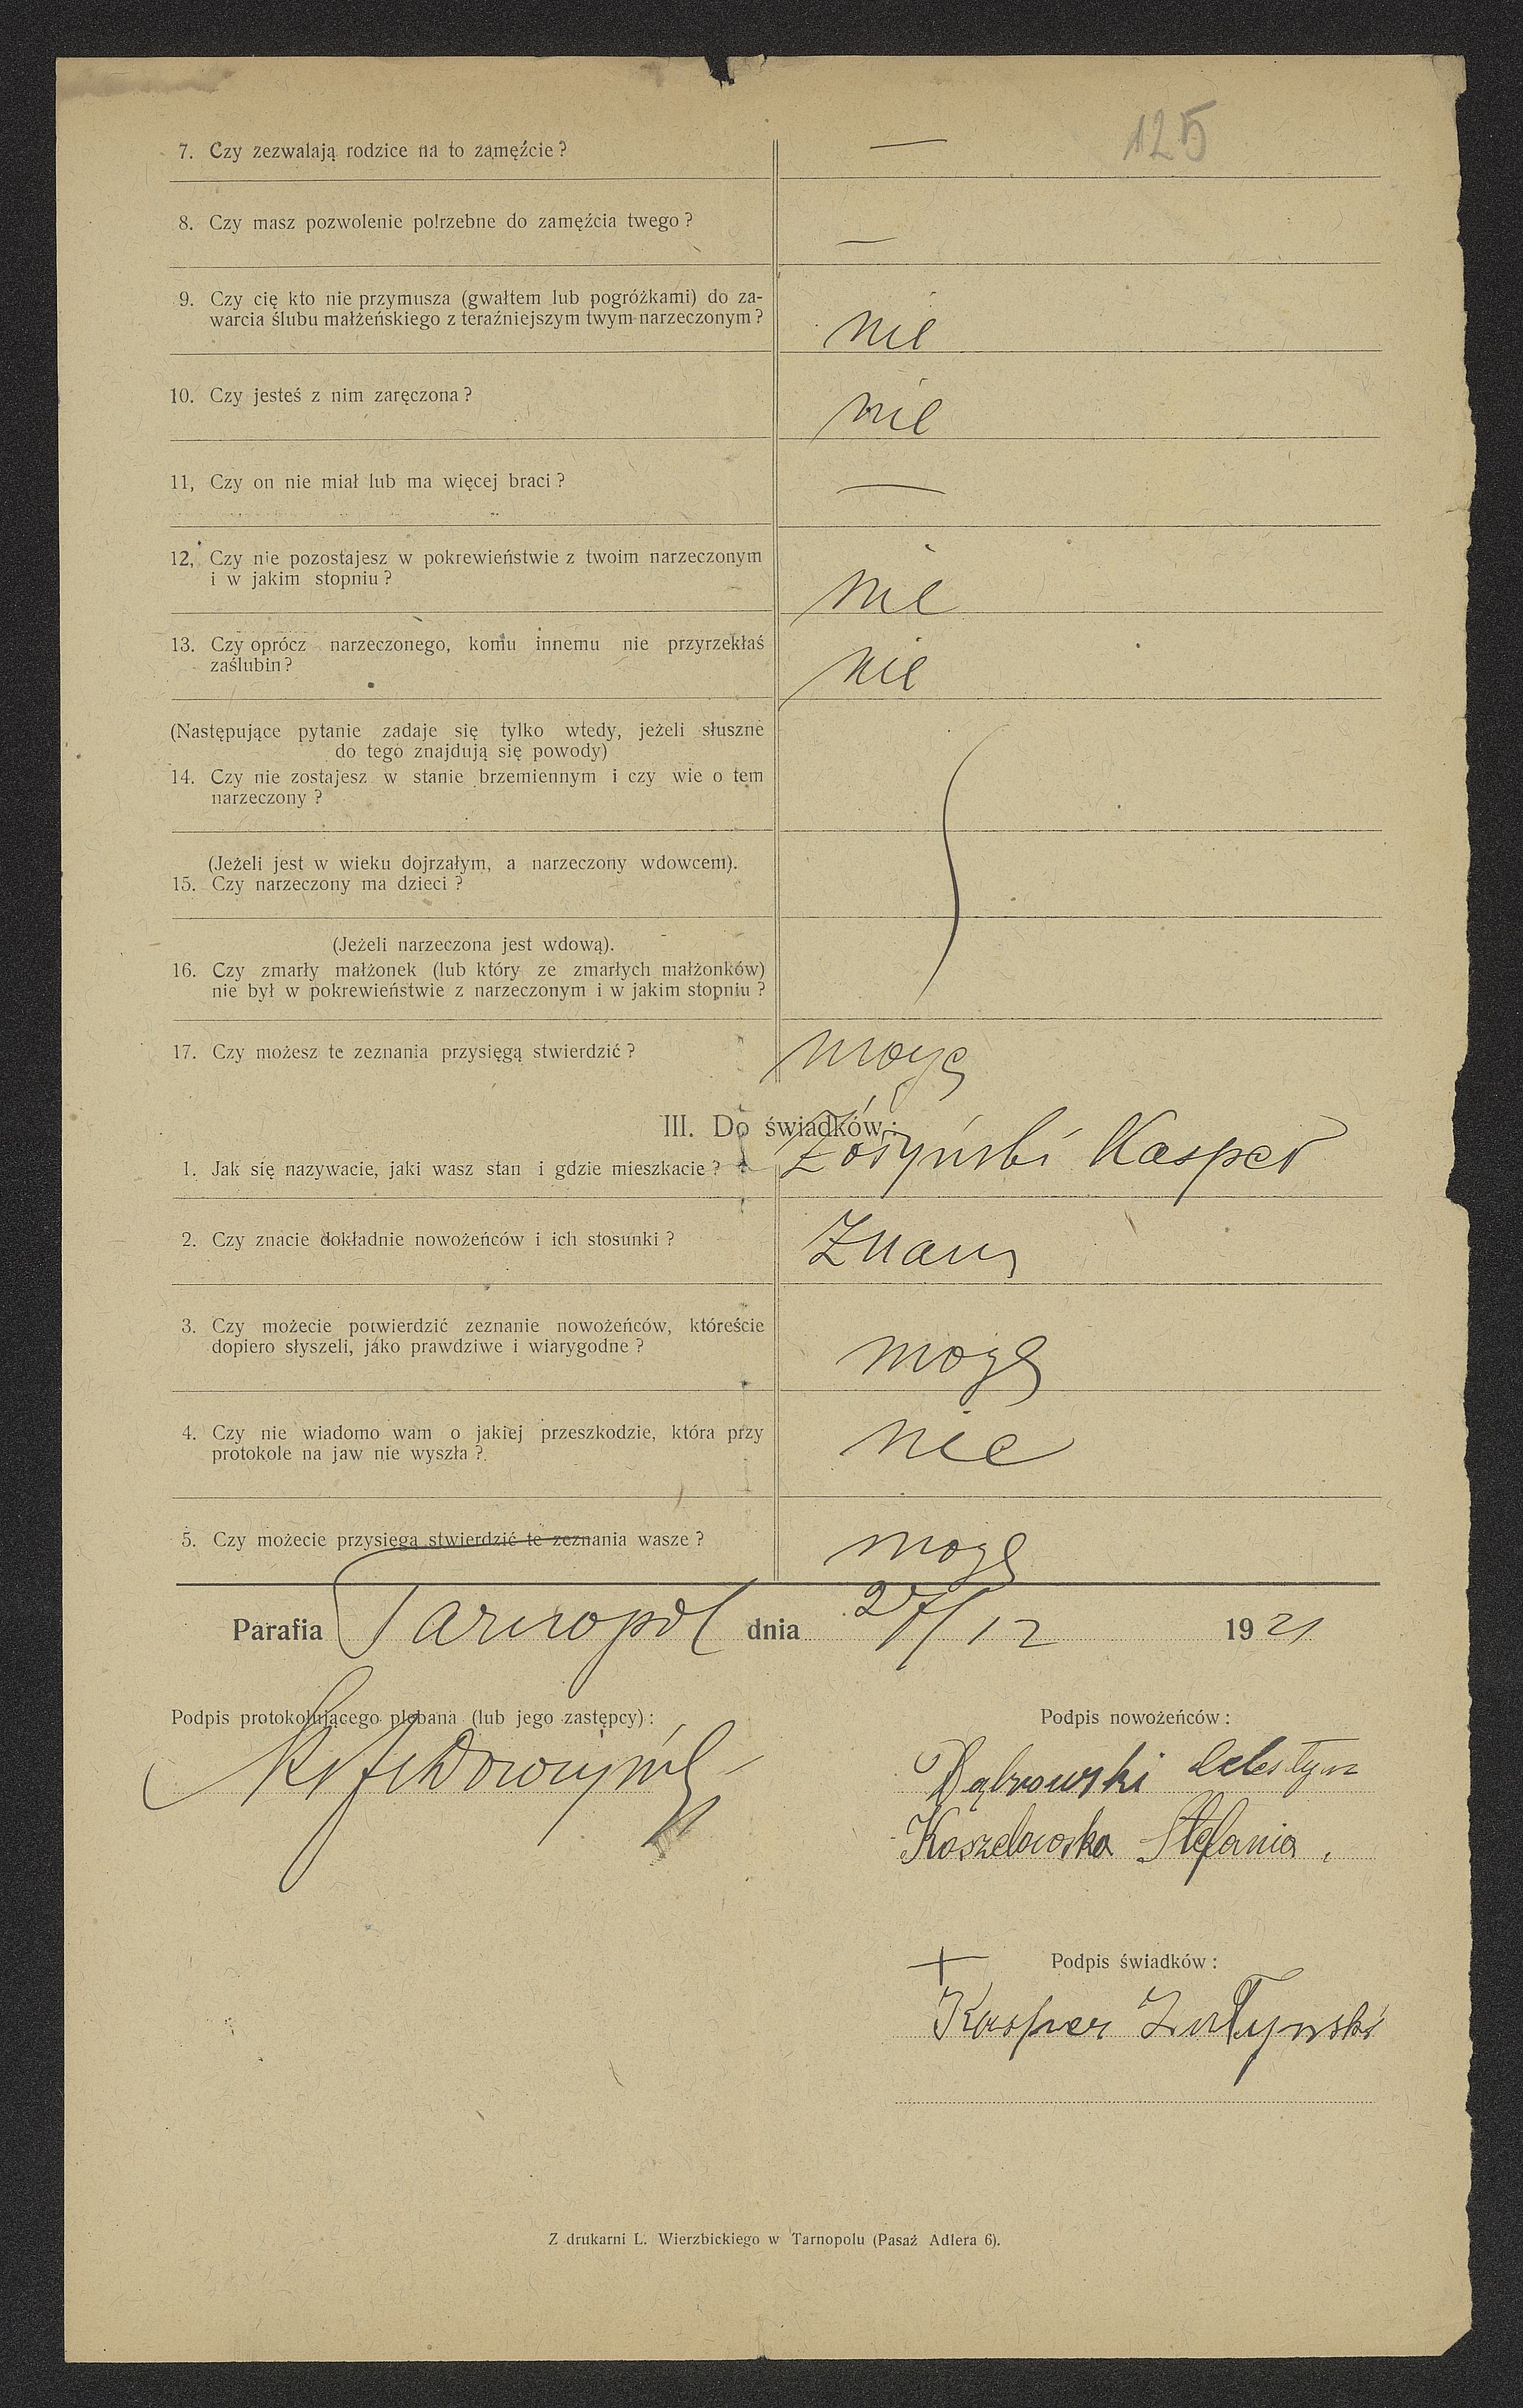 125
7. Czy zezwalają rodzice na to zamęźcie? —
8. Czy masz pozwolenie potrzebne do zamęźcia twego? —
9. Czy cię kto nie przymusza (gwałtem lub pogróżkami) do za-
warcia ślubu małżeńskiego z teraźniejszym twym narzeczonym? nie
10. Czy jesteś z nim zaręczona? nie
11, Czy on nie miał lub ma więcej braci? —
12, Czy nie pozostajesz w pokrewieństwie z twoim narzeczonym
i w jakim stopniu? nie
13. Czy oprócz narzeczonego, komu innemu nie przyrzekłaś
zaślubin? nie
(Następujące pytanie zadaje się tylko wtedy, jeżeli słuszne
do tego znajdują się powody)
14. Czy nie zostajesz w stanie brzemiennym i czy wie o tem
narzeczony?
(Jeżeli jest w wieku dojrzałym, a narzeczony wdowcem).
15. Czy narzeczony ma dzieci?
(Jeżeli narzeczona jest wdową).
16. Czy zmarły małżonek (lub który ze zmarłych małżonków)
nie był w pokrewieństwie z narzeczonym i w jakim stopniu?
17. Czy możesz te zeznania przysięgą stwierdzić? mogę
III. Do świadków:
1. Jak się nazywacie, jaki wasz stan i gdzie mieszkacie? Kasper
2. Czy znacie dokładnie nowożeńców i ich stosunki? Znam
3. Czy możecie potwierdzić zeznanie nowożeńców, któreście
dopiero słyszeli, jako prawdziwe i wiarygodne? mogę
4. Czy nie wiadomo wam o jakiej przeszkodzie, która przy
protokole na jaw nie wyszła? nie
5. Czy możecie przysięgą stwierdzić te zeznania wasze? mogę
Parafia Tarnopol dnia 27/12 1921
Podpis protokołującego plebana (lub jego zastępcy):
Podpis nowożeńców:
Dąbrowski Celestyn
Stefania
+ Podpis świadków:
Kasper
Z drukarni L. Wierzbickiego w Tarnopolu (Pasaż Adlera 6).